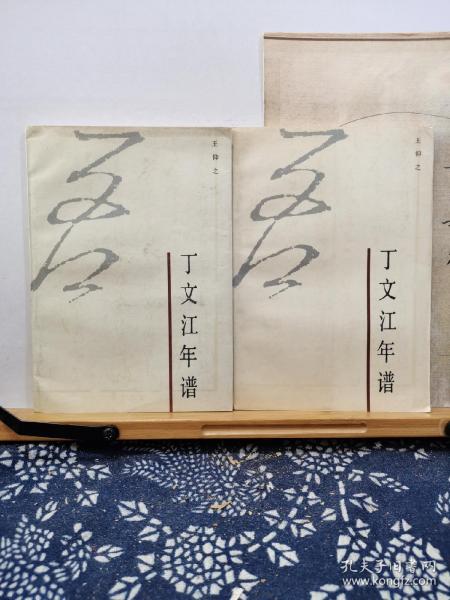 王仰之
丁文江年谱
王仰之
丁文江年谱
孔夫子旧书网
www.kongfz.com